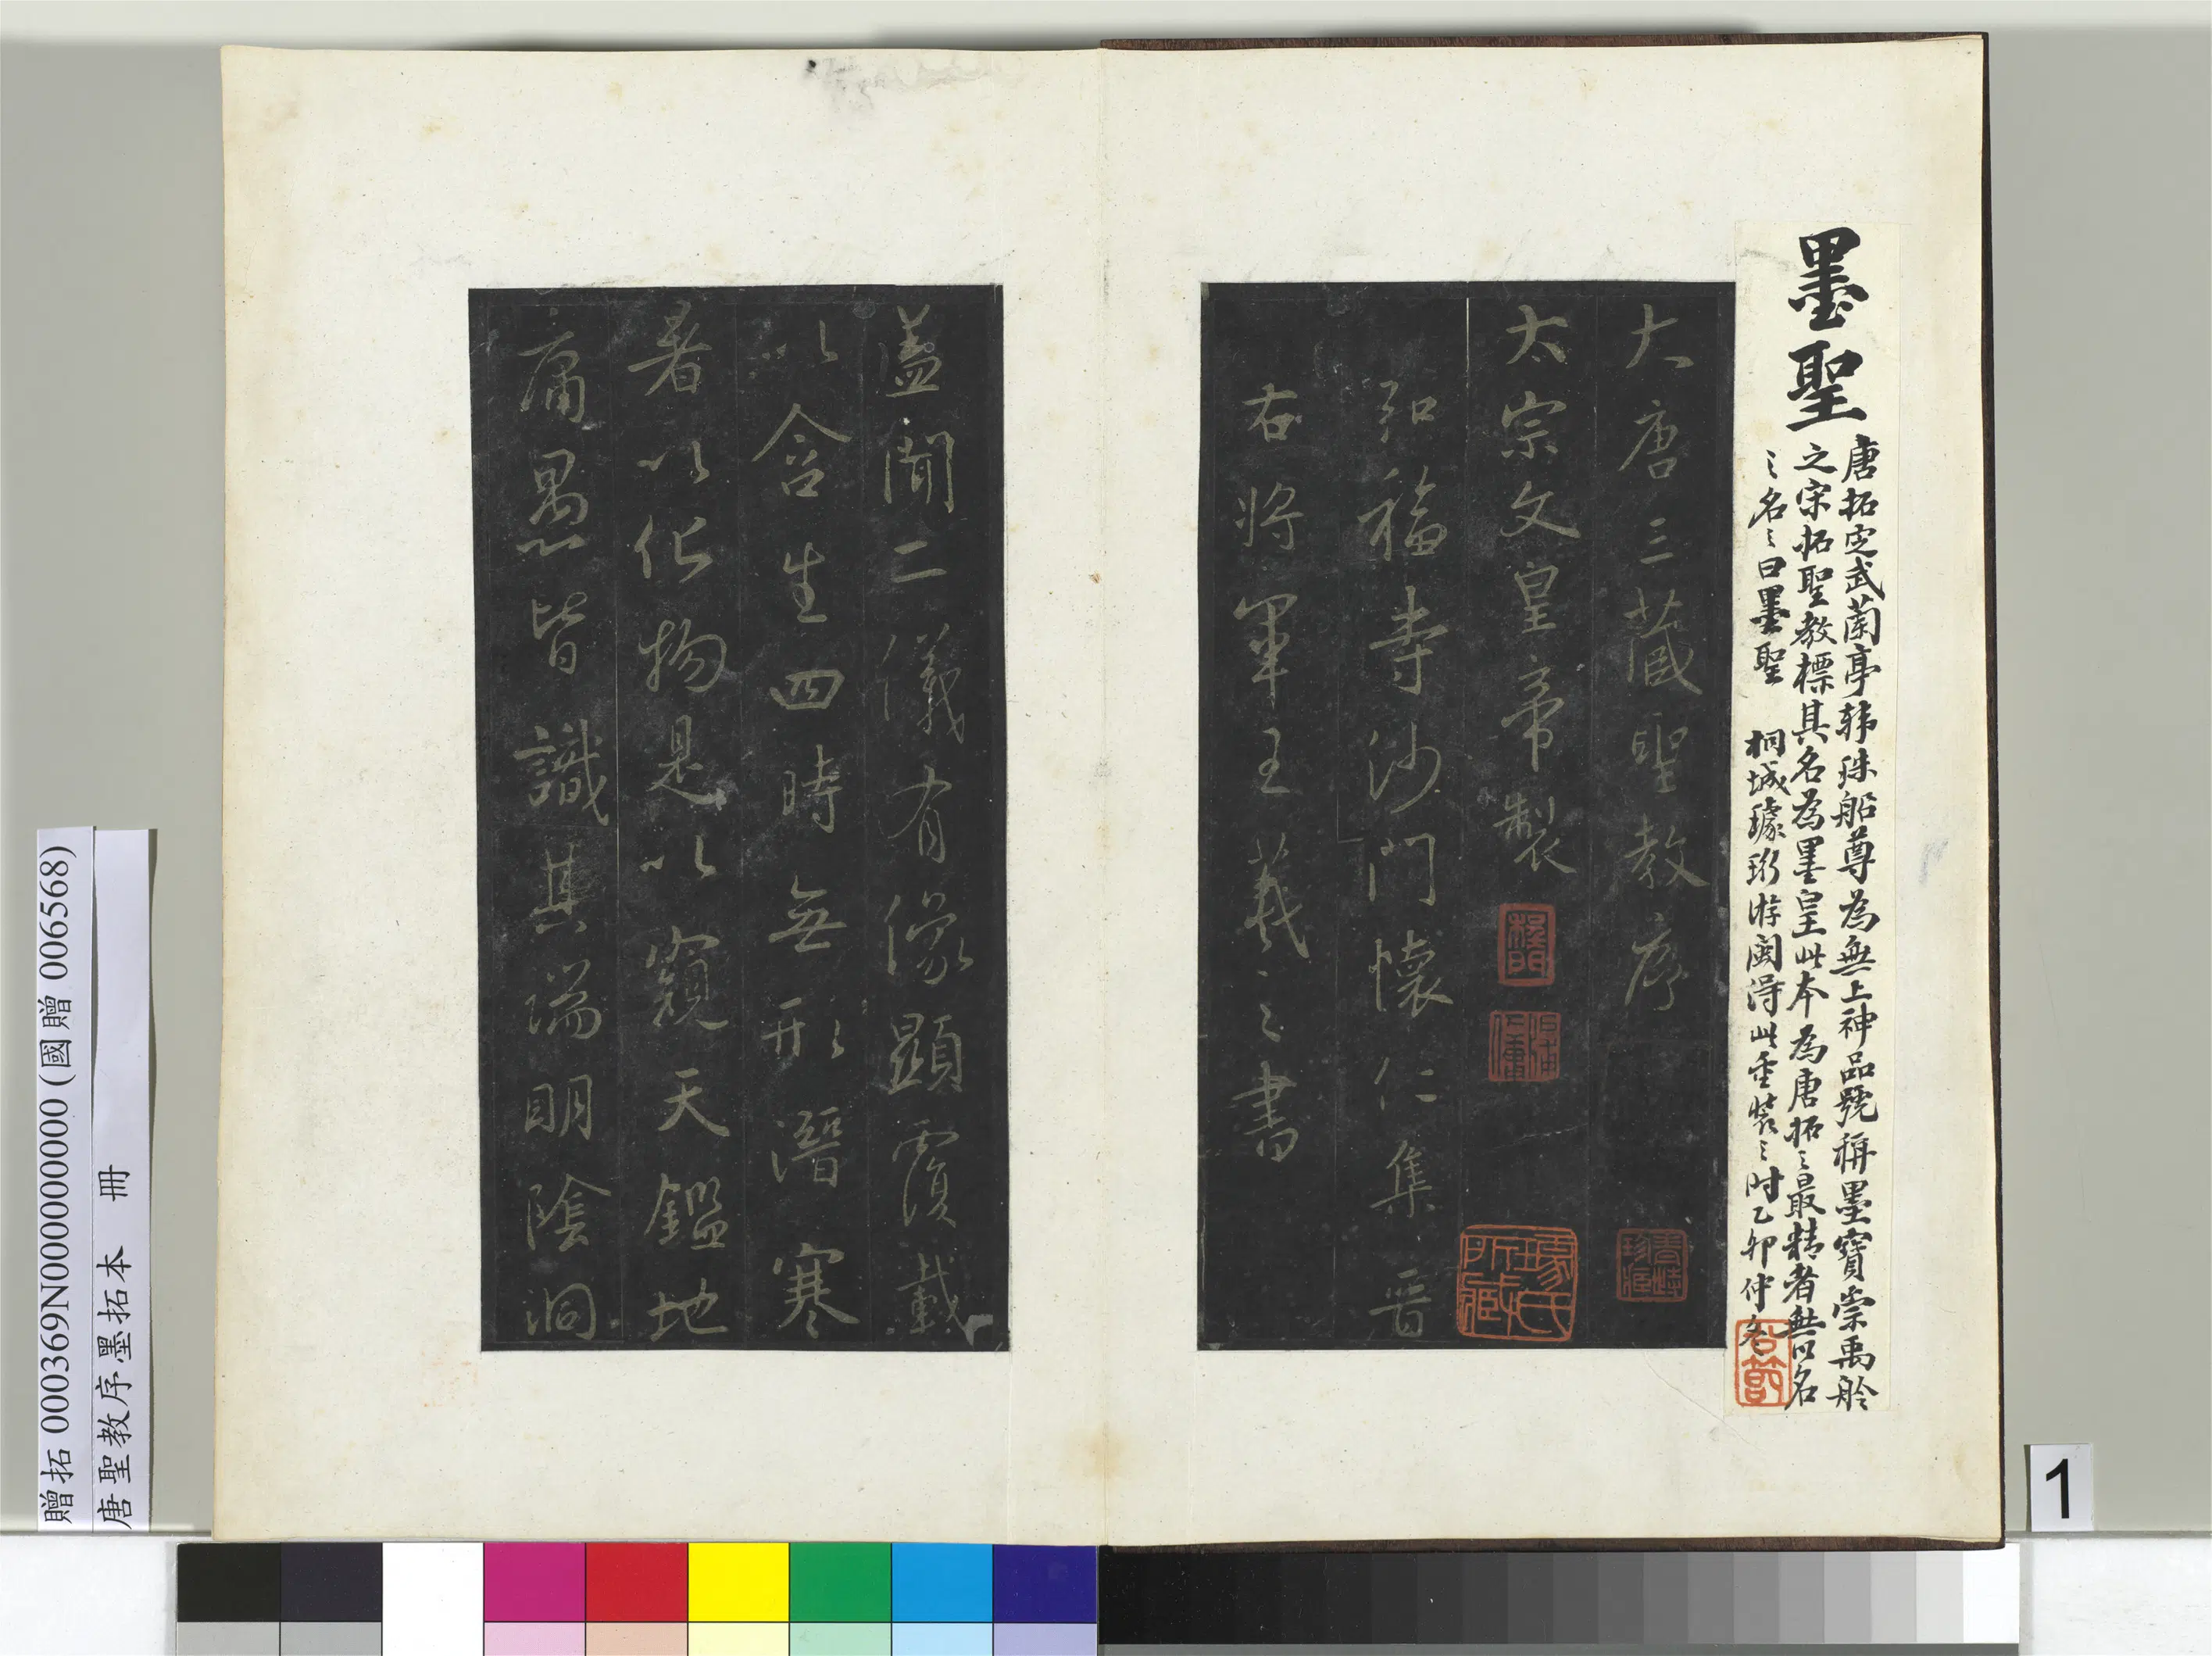 墨聖
唐拓定武蘭亭韓珠船尊為無上神品號稱墨寶崇禹舲
之宋拓聖教標其名為墨皇此本為唐拓之最精者無以名
之名之曰墨聖 桐城璩珩游閩得此重裝之時乙卯仲冬
大唐三藏聖教序
太宗文皇帝製
弘福寺沙門懷仁集晉
右將軍王羲之書
璩氏所藏
蓋聞二儀有像顯覆載
以含生四時無形潛寒
暑以化物是以窺天鑑地
庸愚皆識其端明陰洞
贈拓 000369N000000000 (國贈 006568)
唐聖教序墨拓本 冊
1